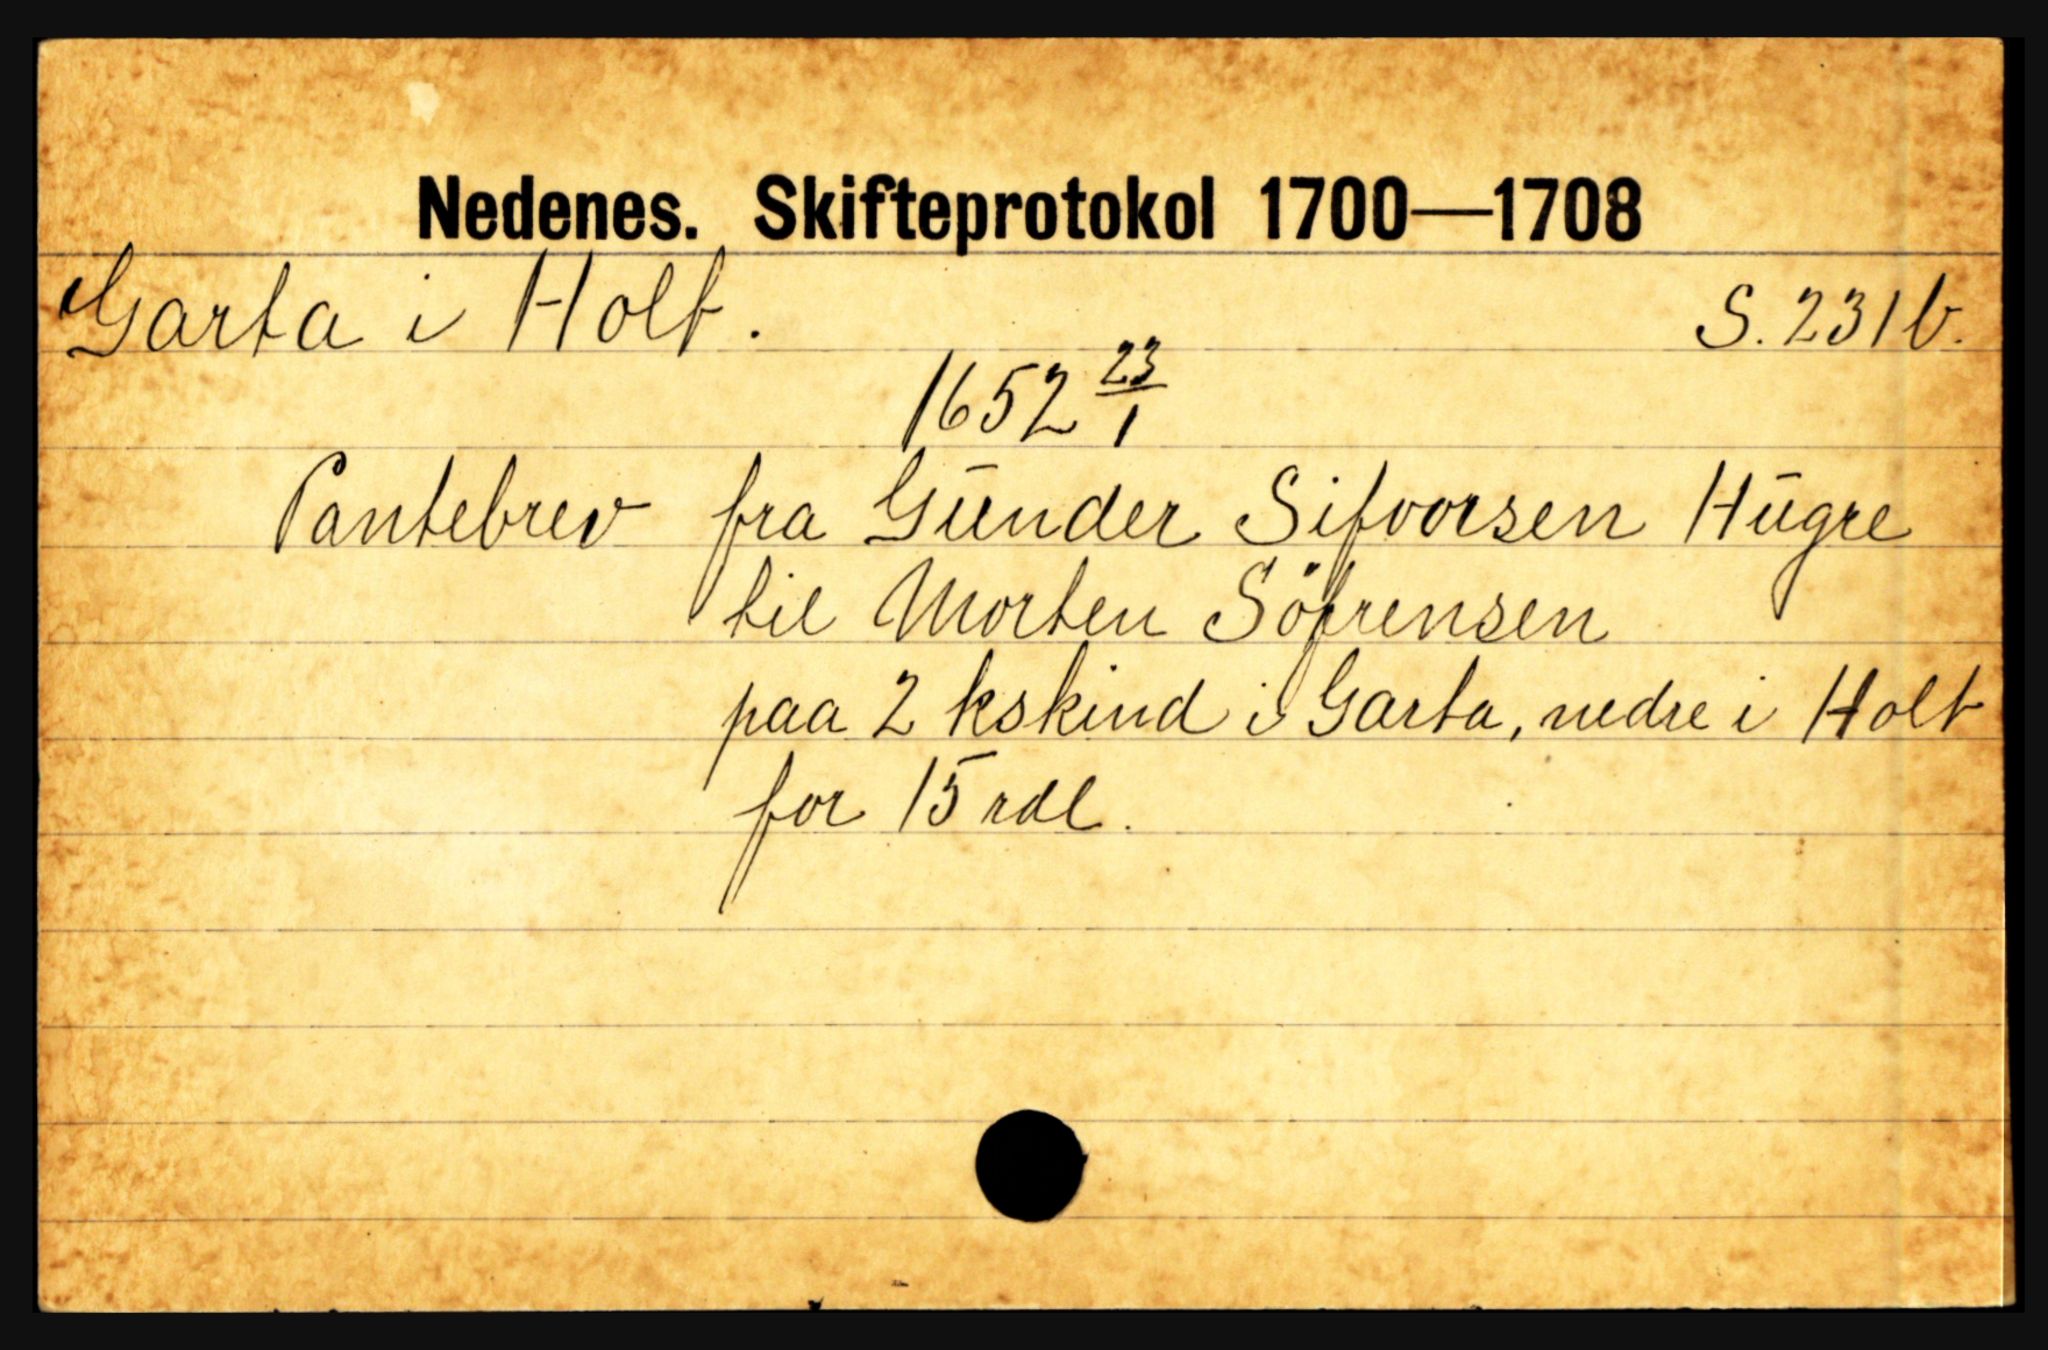 Nedenes. Skifteprotokol 1700—1708
Garta i Holt. S. 231b.
1652 23/1
Pantebrev fra Gūnder Sifvorsen Hūgre
til Morten Söfrensen
paa 2 kskind i Garta, nedre i Holt
for 15 rdl.